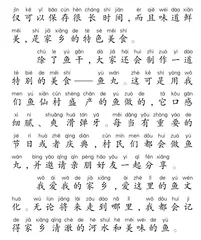 jǐn kě yǐ bǎo cún hěn cháng shí jiān ér qiě wèi dào xiān
仅可以保存很长时间，而且味道鲜
měi shì jiā xiāng de tè sè měi shí
美，是家乡的特色美食。
chú le yú gān dà jiā hái huì zhì zuò yí dào
除了鱼干，大家还会制作一道
tè bié de měi shí yú wán zhè kě shì yòng wǒ
特别的美食——鱼丸。这可是用我
men yú xiān cūn shèng chǎn de yú zuò de tā kǒu gǎn
们鱼仙村盛产的鱼做的，它口感
xì nì shuǎng huá tán yá měi dāng yǒu zhòng yào de
细腻、爽滑弹牙。每当有重要的
jié rì huò zhě qìng diǎn cūn mín men dōu huì zuò yú
节日或者庆典，村民们都会做鱼
wán bìng yāo qǐng qīn péng hǎo yǒu yì qǐ fēn xiǎng
丸，并邀请亲朋好友一起分享。
wǒ ài wǒ de jiā xiāng ài zhè lǐ de yú wén
我爱我的家乡，爱这里的鱼文
huà wú lùn jiāng lái zǒu dào nǎ lǐ wǒ dōu huì jì
化。无论将来走到哪里，我都会记
dé jiā xiāng qīng chè de hé shuǐ hé měi wèi de yú
得家乡清澈的河水和美味的鱼。